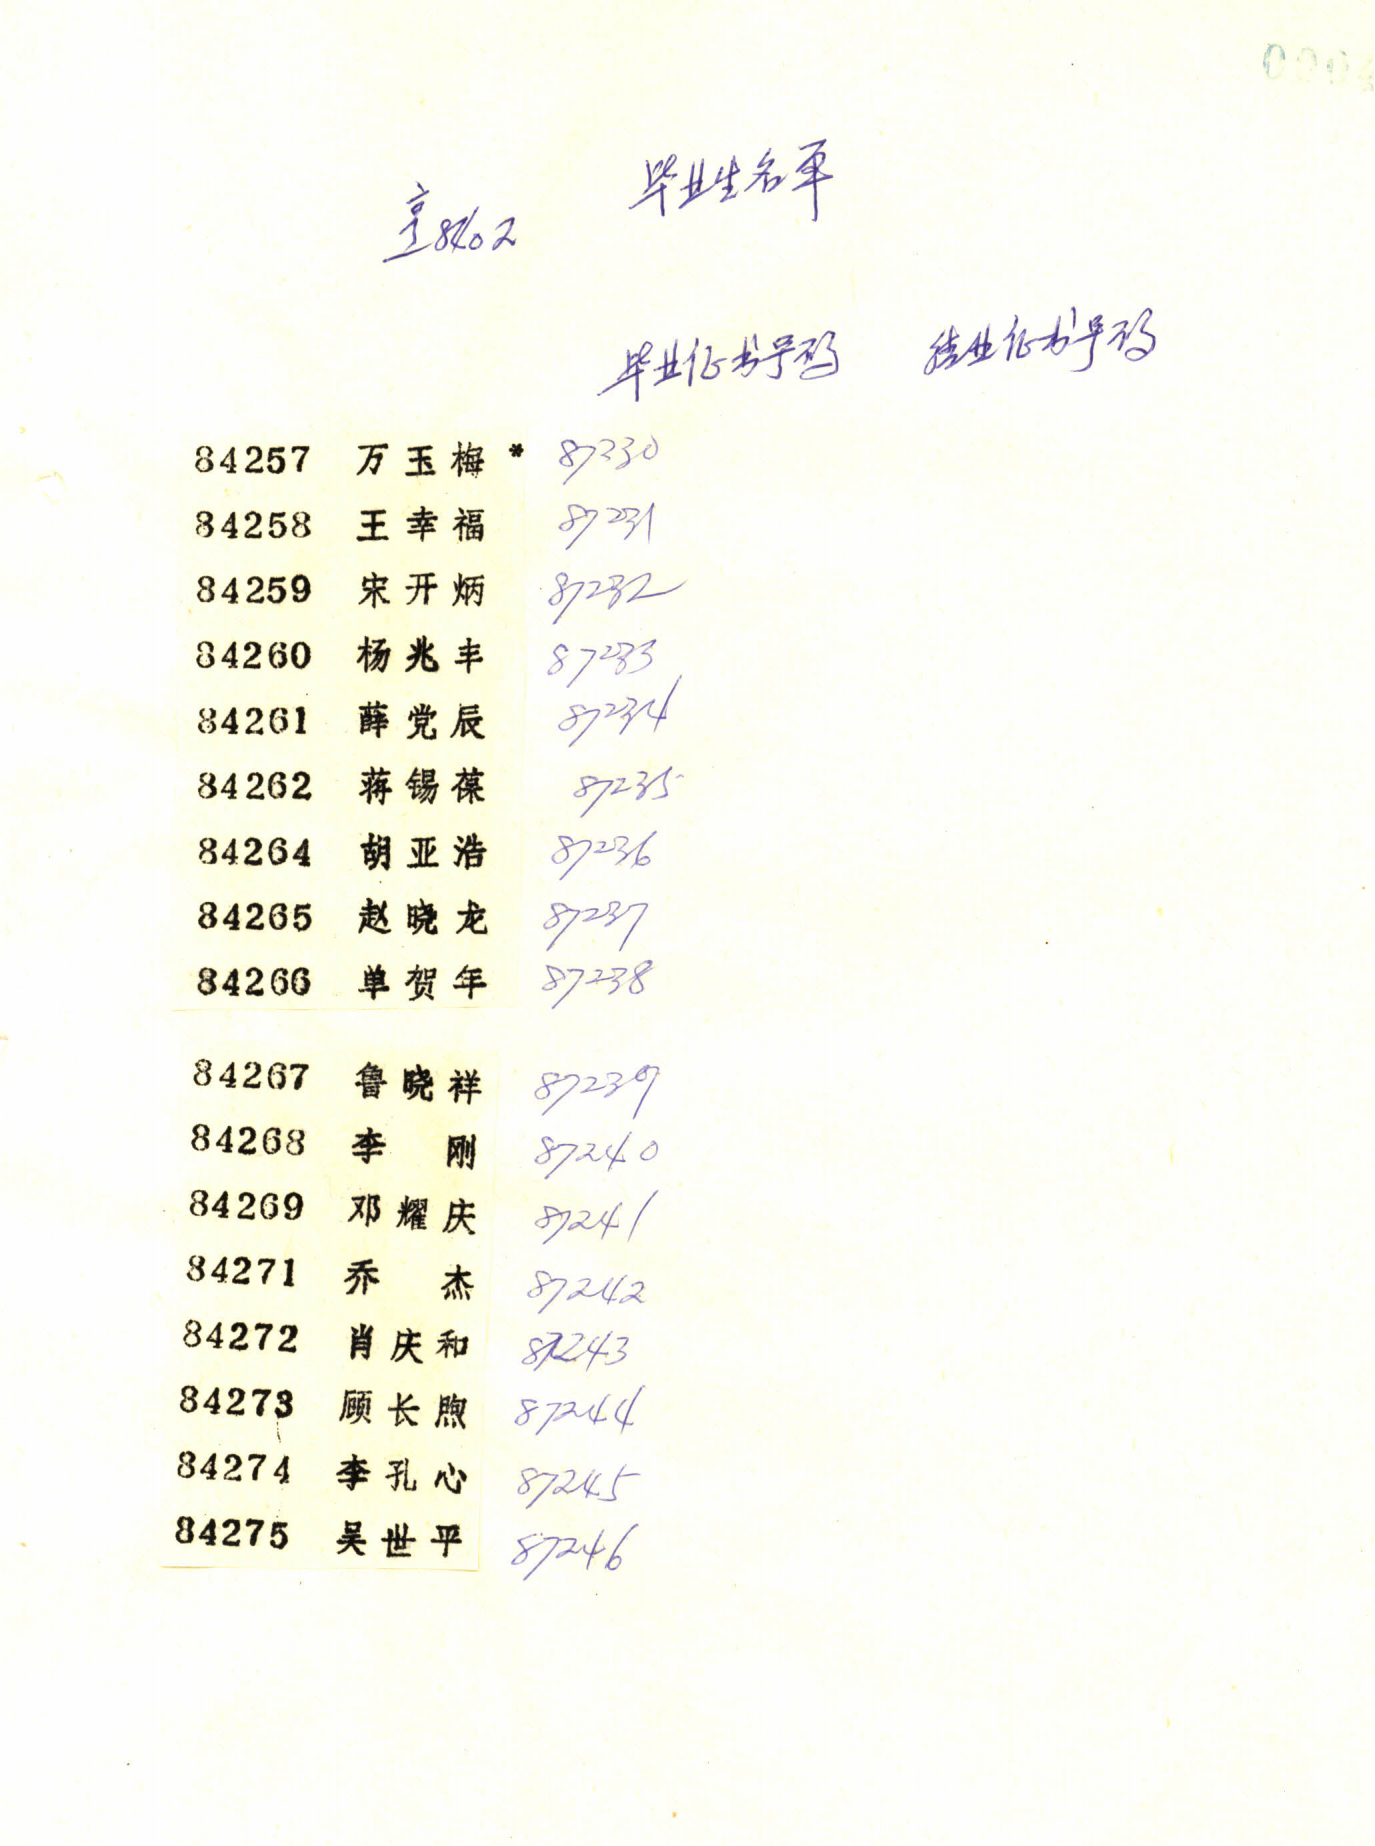 毕业生名单
8402
毕业证书号码 结业证书号码
84257 万玉梅* 87230
84258 王幸福 87231
84259 宋开炳 87232
84260 杨兆丰 87233
84261 薛党辰 87234
84262 蒋锡葆 87235
84264 胡亚浩 87236
84265 赵晓龙 87237
84266 单贺年 87238
84267 鲁晓祥 87239
84268 李刚 87240
84269 邓耀庆 87241
84271 乔杰 87242
84272 肖庆和 87243
84273 顾长煦 87244
84274 李孔心 87245
84275 吴世平 87246